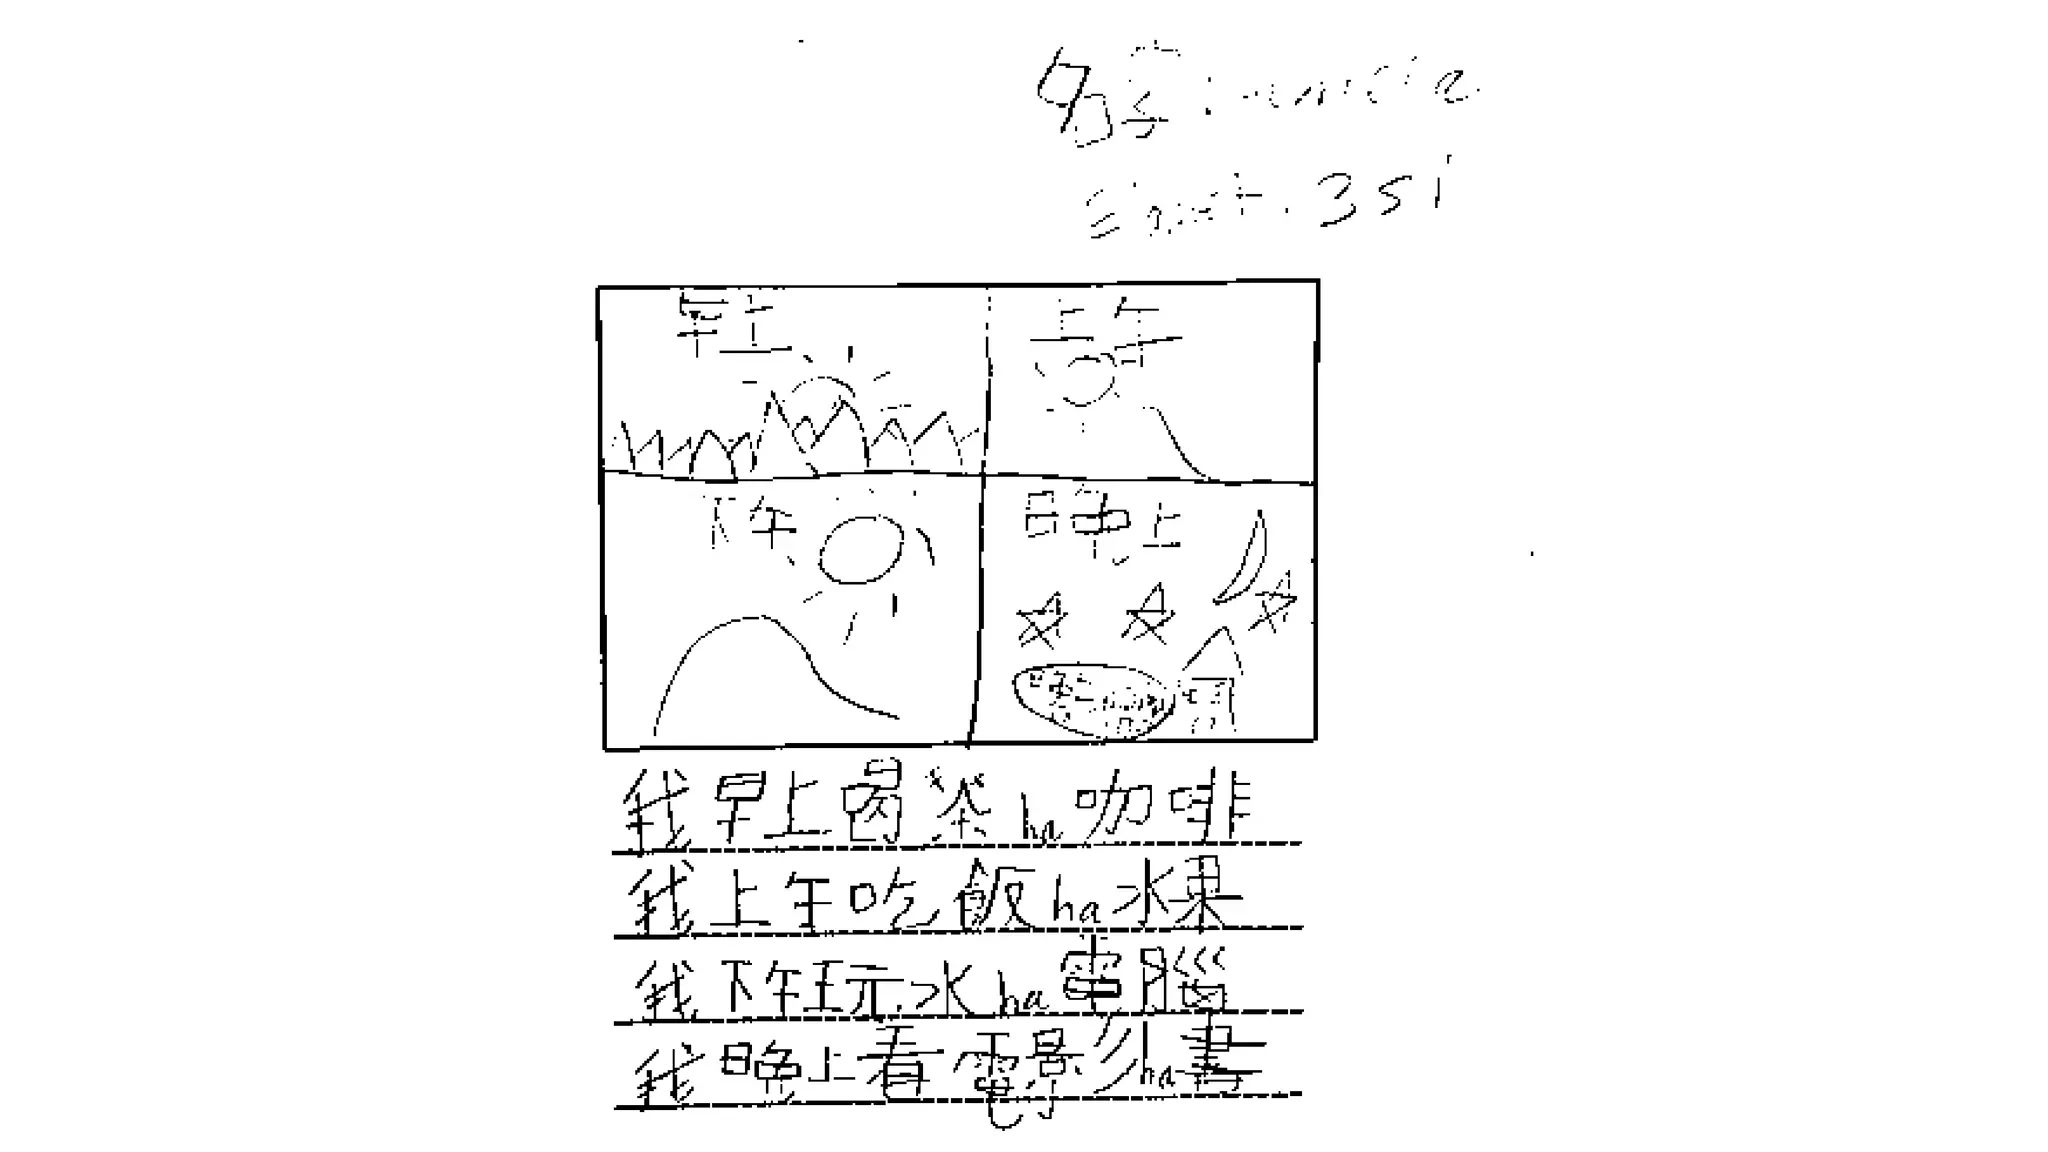 名字:
351
早上
上午
下午
晚上
我早上喝茶ha咖啡
我上午吃飯ha水果
我下午玩水ha電腦
我晚上看電影ha書